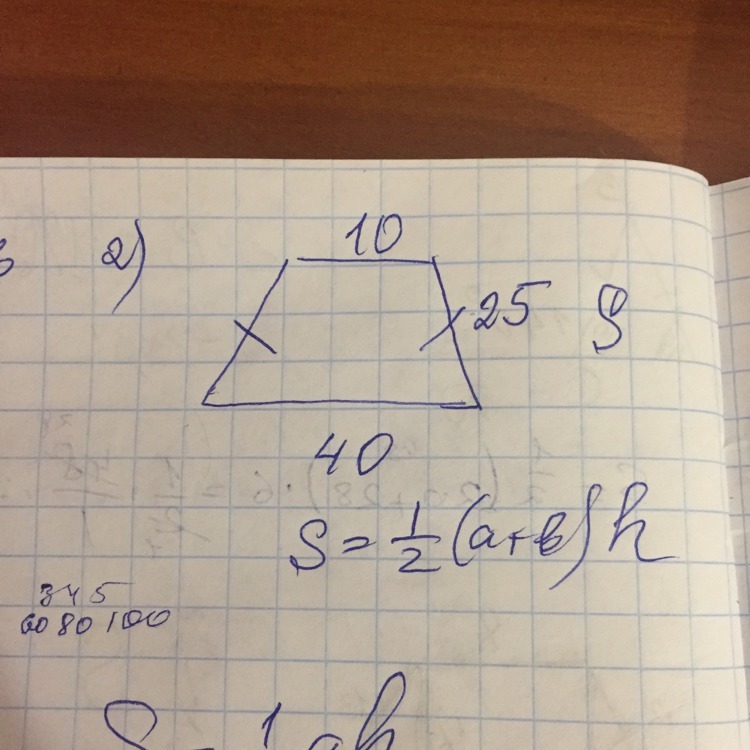 2)
10
25 S
40
S = 1/2 (a+b) h
3 4 5
60 80 100
S = 1 ah